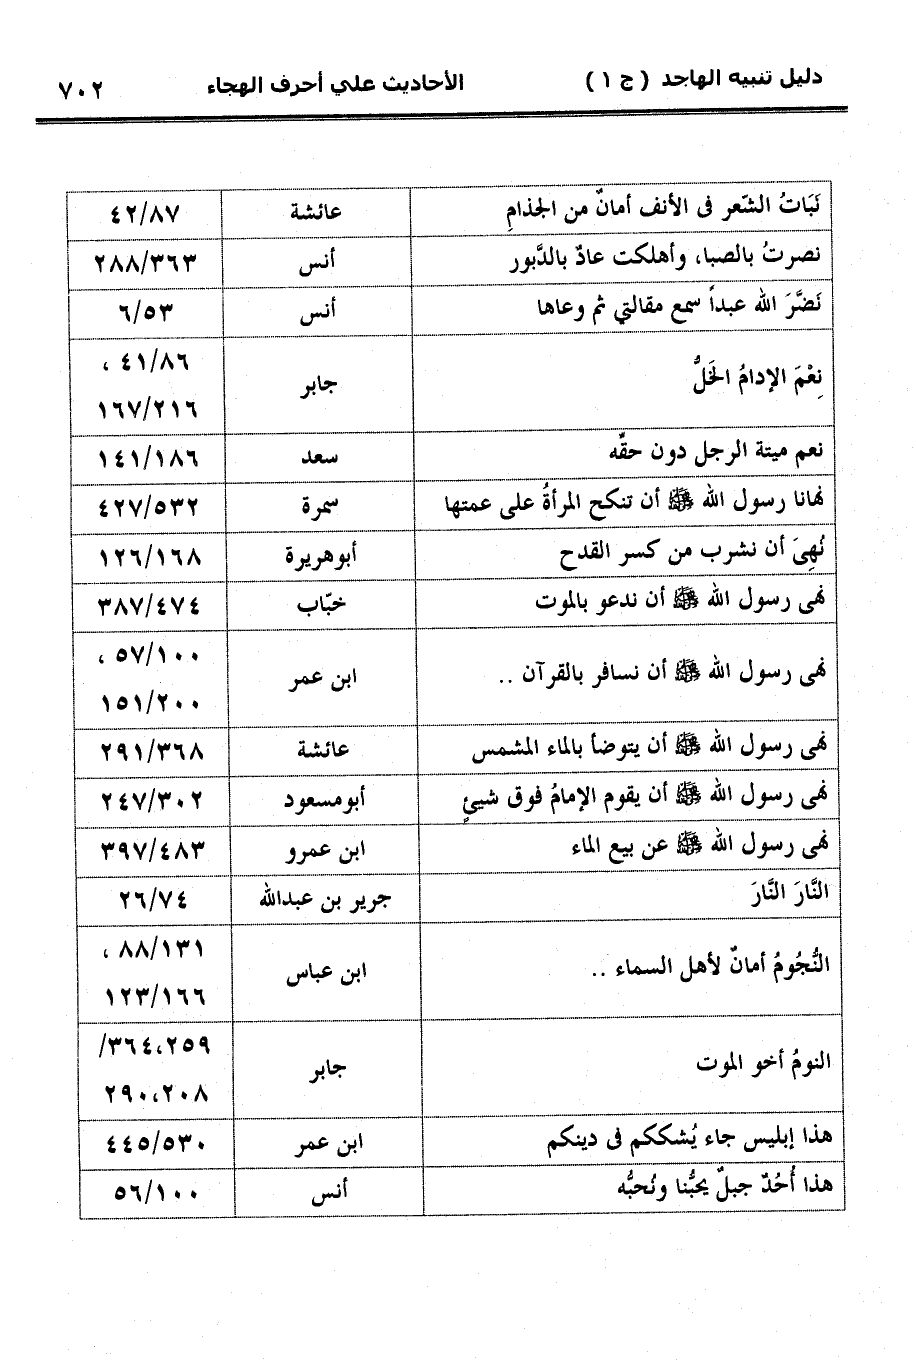 دليل تنبيه الهاجد ( ج ١ ) الأحاديث علي أحرف الهجاء ٧٠٢
نَبَاتُ الشّعر فى الأنف أمانٌ من الجذامِ عائشة ٤٢/٨٧
نصرتُ بالصبا، وأهلكت عادٌ بالدَّبور أنس ٢٨٨/٣٦٣
نَضَّرَ الله عبداً سمع مقالتي ثم وعاها أنس ٦/٥٣
نِعْمَ الإدامُ الخَلُّ جابر ٤١/٨٦ ،
١٦٧/٢١٦
نعم ميتة الرجل دون حقّه سعد ١٤١/١٨٦
نهانا رسول الله ﷺ أن تنكح المرأةُ على عمتها سمرة ٤٢٧/٥٣٢
نُهِيَ أن نشرب من كسر القدح أبوهريرة ١٢٦/١٦٨
نهى رسول الله ﷺ أن ندعو بالموت خبّاب ٣٨٧/٤٧٤
نهى رسول الله ﷺ أن نسافر بالقرآن .. ابن عمر ٥٧/١٠٠ ،
١٥١/٢٠٠
نهى رسول الله ﷺ أن يتوضأ بالماء المشمس عائشة ٢٩١/٣٦٨
نهى رسول الله ﷺ أن يقوم الإمامُ فوق شيئٍ أبومسعود ٢٤٧/٣٠٢
نهى رسول الله ﷺ عن بيع الماء ابن عمرو ٣٩٧/٤٨٣
النَّارَ النَّارَ جرير بن عبدالله ٢٦/٧٤
النُّجُومُ أمانٌ لأهل السماء .. ابن عباس ٨٨/١٣١ ،
١٢٣/١٦٦
النومُ أخو الموت جابر ٣٦٤،٢٥٩/
٢٩٠،٢٠٨
هذا إبليس جاء يُشككم فى دينكم ابن عمر ٤٤٥/٥٣٠
هذا أُحُدٌ جبلٌ يحبُّنا ونُحبُّه أنس ٥٦/١٠٠